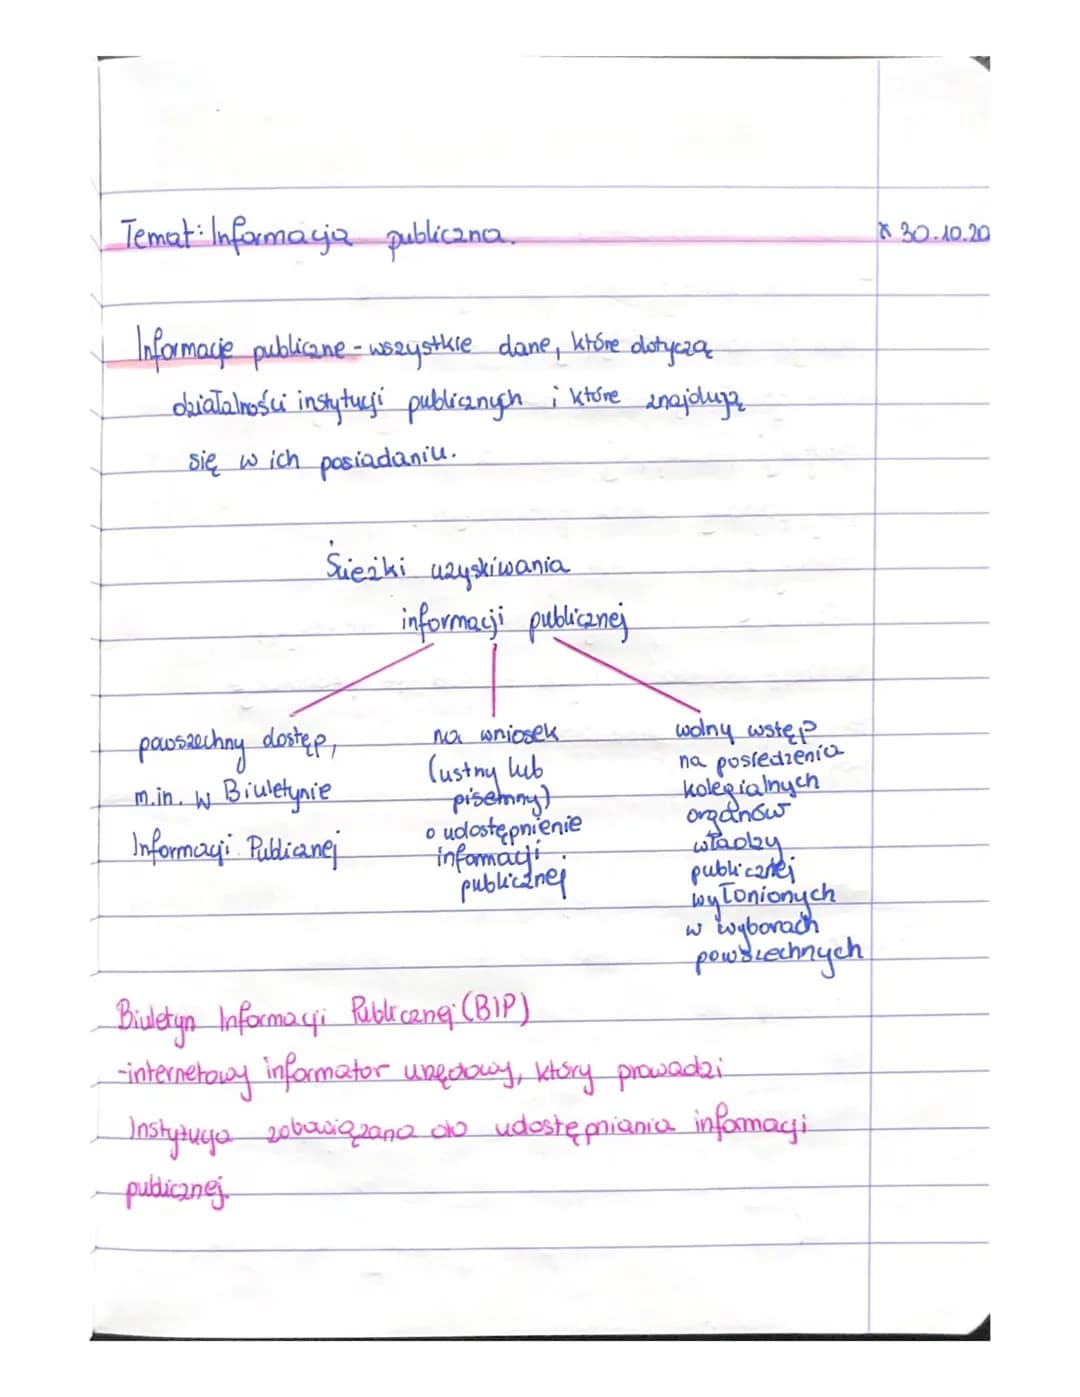 Temat: Informacja publiczna.
30.10.20
Informacje publiczne - wszystkie dane, które dotyczą
działalności instytucji publicznych i które znajdują
się w ich posiadaniu.
Ścieżki uzyskiwania
informacji publicznej
powszechny dostęp,
m.in. w Biuletynie
Informacji Publicznej
na wniosek
(ustny lub
pisemny)
o udostępnienie
informacji
publicznej
wolny wstęp
na posiedzenia
kolegialnych
organów
władzy
publicznej
wyłonionych
w wyborach
powszechnych
Biuletyn Informacji Publicznej (BIP)
-internetowy informator urzędowy, który prowadzi
Instytucja zobowiązana do udostępniania informacji
publicznej.